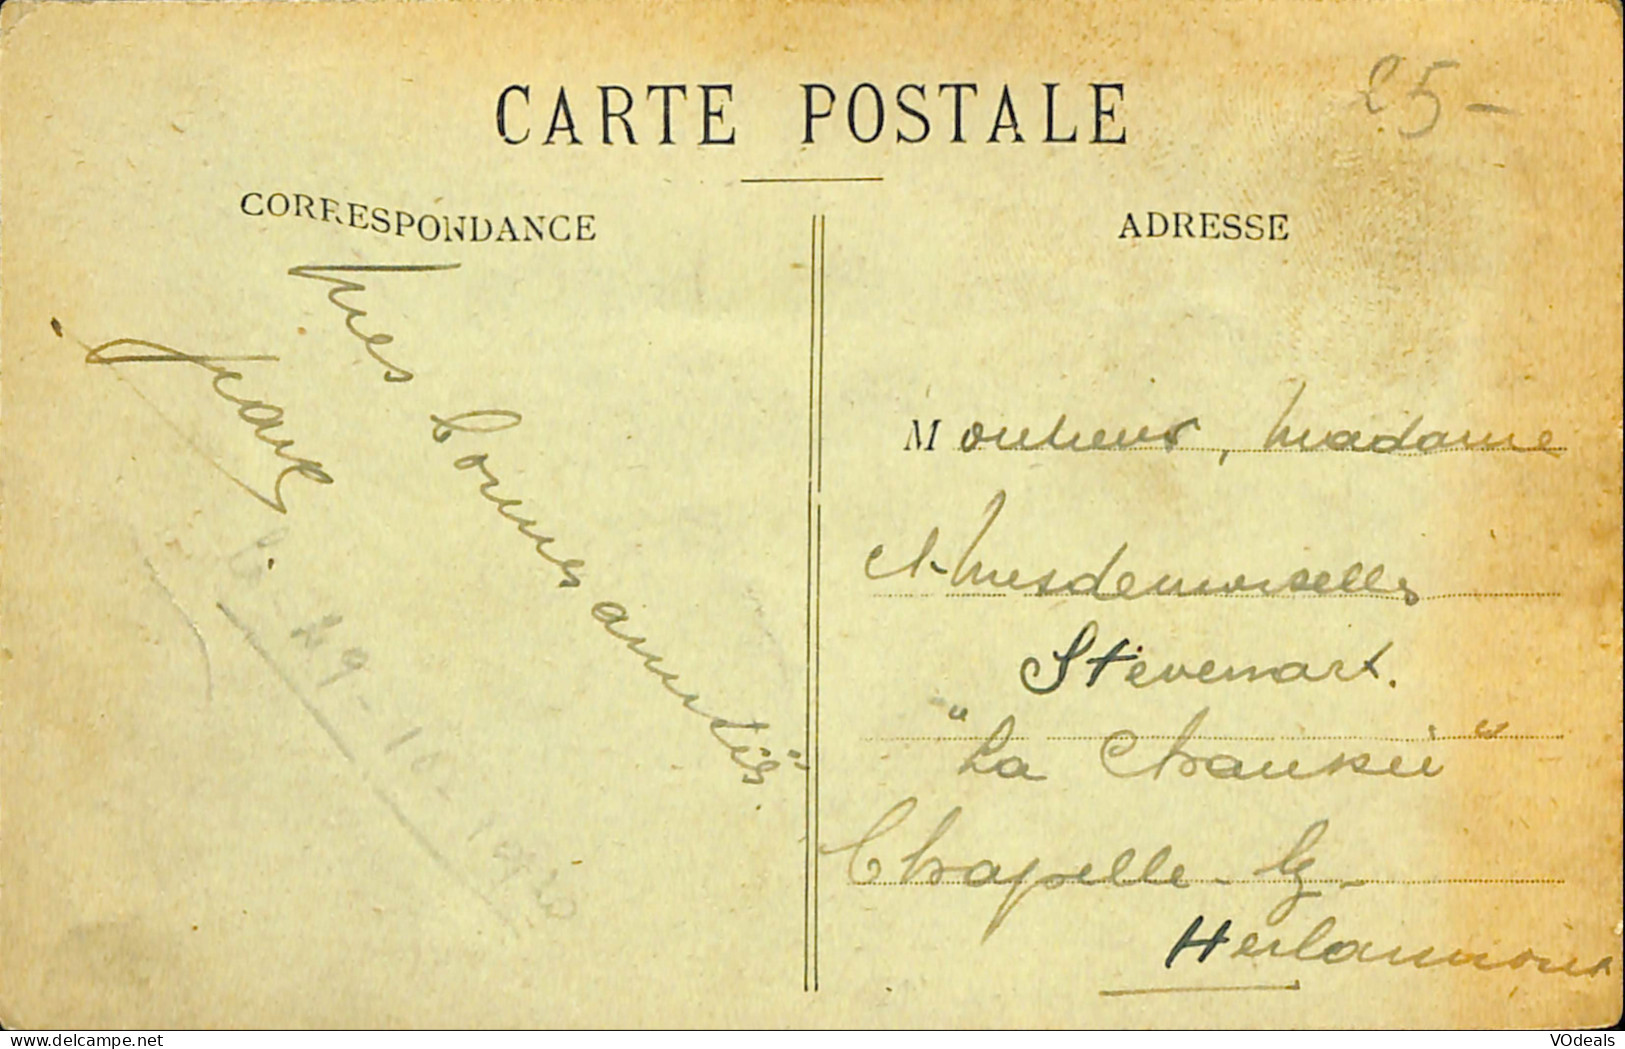 25-
CARTE POSTALE
CORRESPONDANCE
ADRESSE
Mes bonnes amitiés.
Monsieur, Madame
et Mesdemoiselles
Stévenart.
"La Chaussée"
Chapelle-lz-
Herlaimont
VOdeals